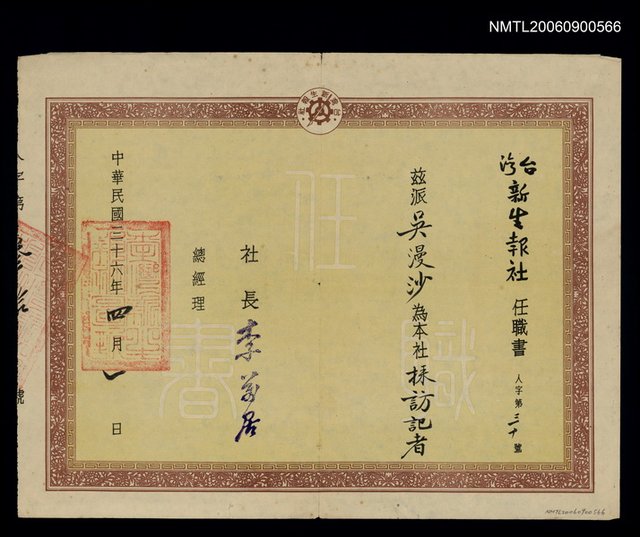 NMTL20060900566
台灣新生報社 任職書 人字第三十號
茲派吳漫沙為本社採訪記者
社長 李萬居
總經理
中華民國三十六年四月一日
任職書
NMTL20060900566